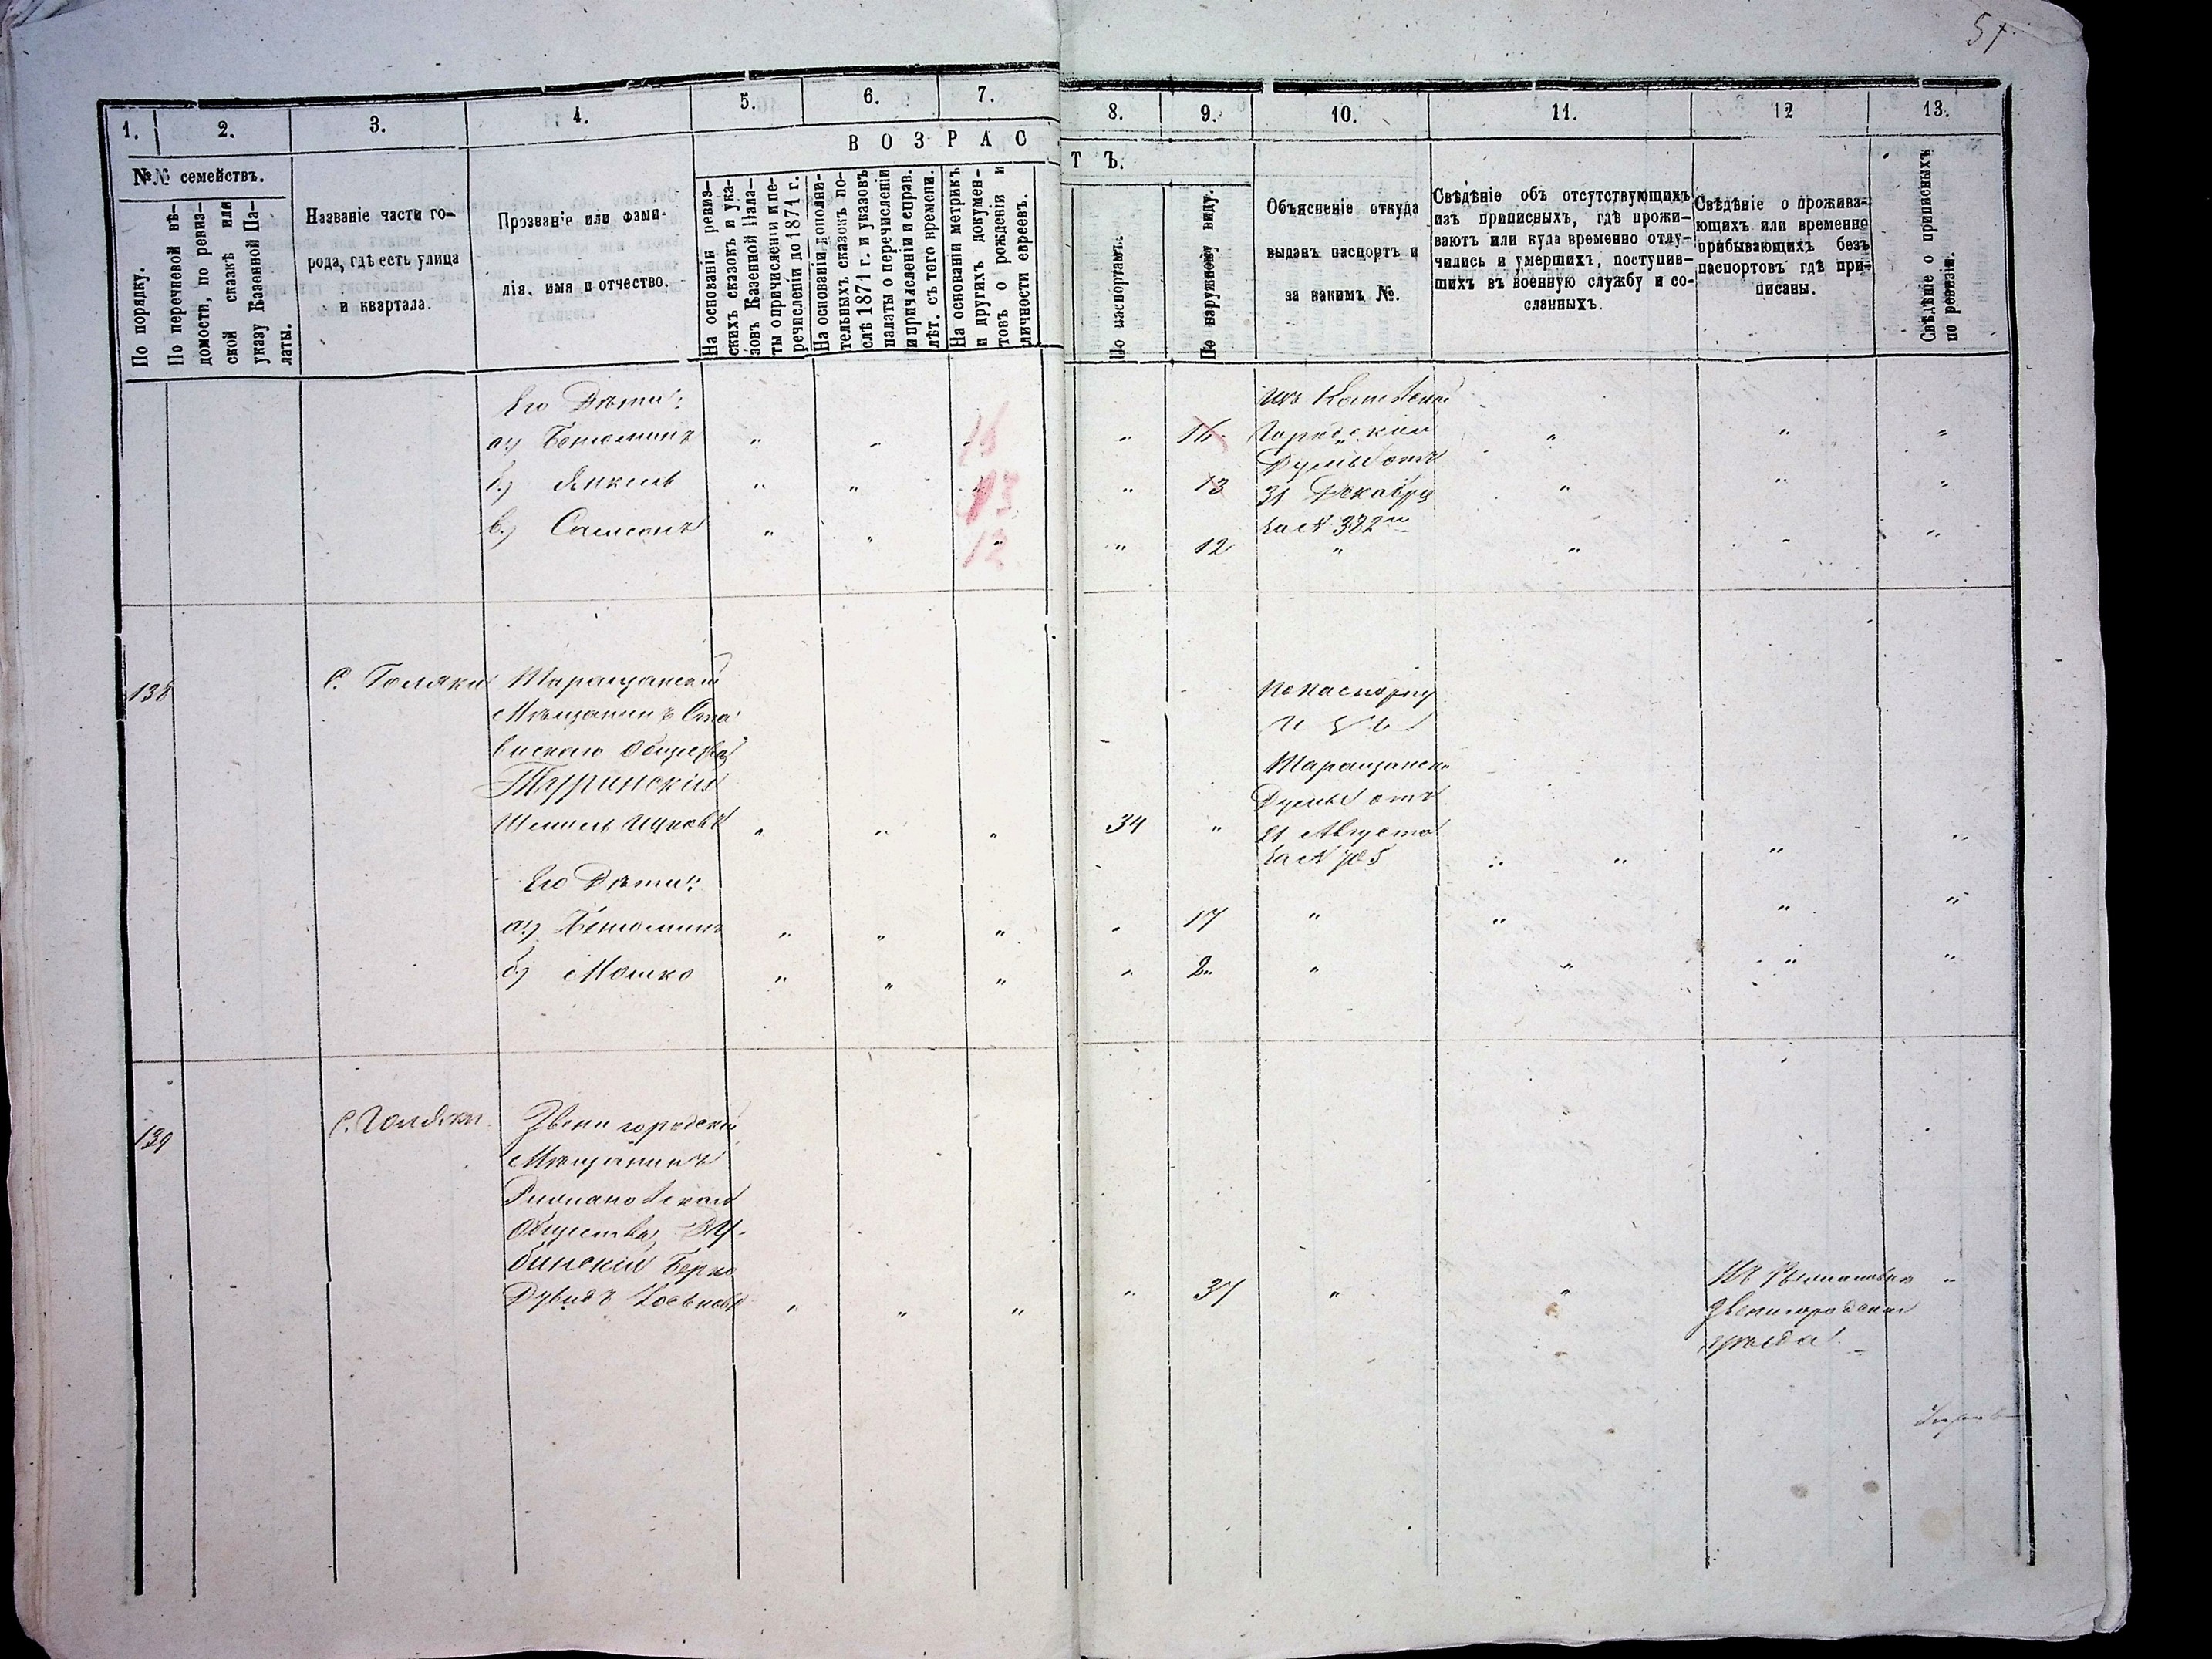 57.
1. 2. 3. 4. 5. 6. 7. 8. 9. 10. 11. 12 13.
№№ семействъ.
По порядку.
По перечневой вѣ-
домости, по ревиз-
ской сказкѣ или
указу Казенной Па-
латы.
Названіе части го-
рода, гдѣ есть улица
и квартала.
Прозваніе или фами-
лія, имя и отчество.
ВОЗРАСТЪ.
На основаніи ревиз-
скихъ сказокъ и ука-
зовъ Казенной Пала-
ты о причисленіи и пе-
речисленіи до 1871 г.
На основаніи дополни-
тельныхъ сказокъ по-
слѣ 1871 г. и указовъ
палаты о перечисленіи
и причисленіи и справ.
лѣт. съ того времени.
На основаніи метрикъ
и другихъ докумен-
товъ о рожденіи и
личности евреевъ.
По паспортамъ.
По наружному виду.
Объясненіе откуда
выданъ паспортъ и
за какимъ №.
Свѣдѣніе объ отсутствующихъ
изъ приписныхъ, гдѣ прожи-
ваютъ или куда временно отлу-
чились и умершихъ, поступив-
шихъ въ военную службу и со-
сланныхъ.
Свѣдѣніе о прожива-
ющихъ или временно
прибывающихъ безъ
паспортовъ гдѣ при-
писаны.
Свѣдѣніе о приписныхъ
по ревизіи.
Его Дѣти:
а) Бенюминъ " " 16 " 16 " " "
б) Янкель " " 13 " 13 " " "
в) Самсонъ " " 12 " 12 " " " "
Городской
Думы отъ
31 Декабря
за № 382
138 С. Голяки Таращанскій
Мѣщанинъ Ста
вискаго Общества
Туринскій
Шмиль Ицковъ " " " 34 "
По паспорту
Таращанск
Думы отъ
21 Августа
за № 705
Его Дѣти:
а) Бенюминъ " " " " 17 " " " "
б) Мошко " " " " 2 " " " "
139 С. Голяки Звенигородскій
Мѣщанинъ
Общества, Ду-
бинскій Берко
Дувидъ " " " " 37 " "
Звенигородскаго
уѣзда.